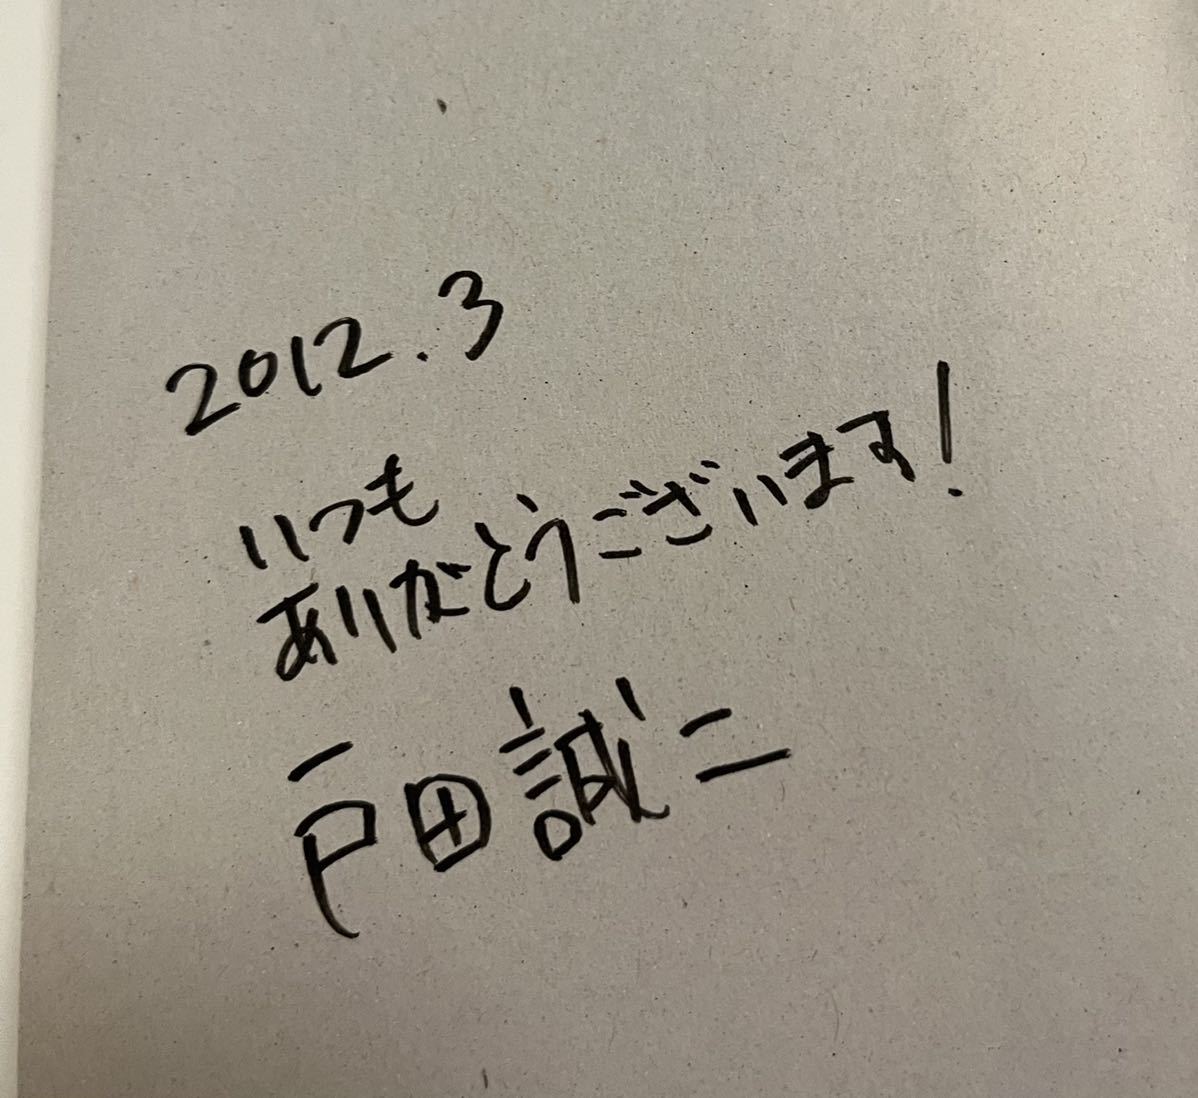 2012.3
いつも
ありがとうございます!
戸田誠二